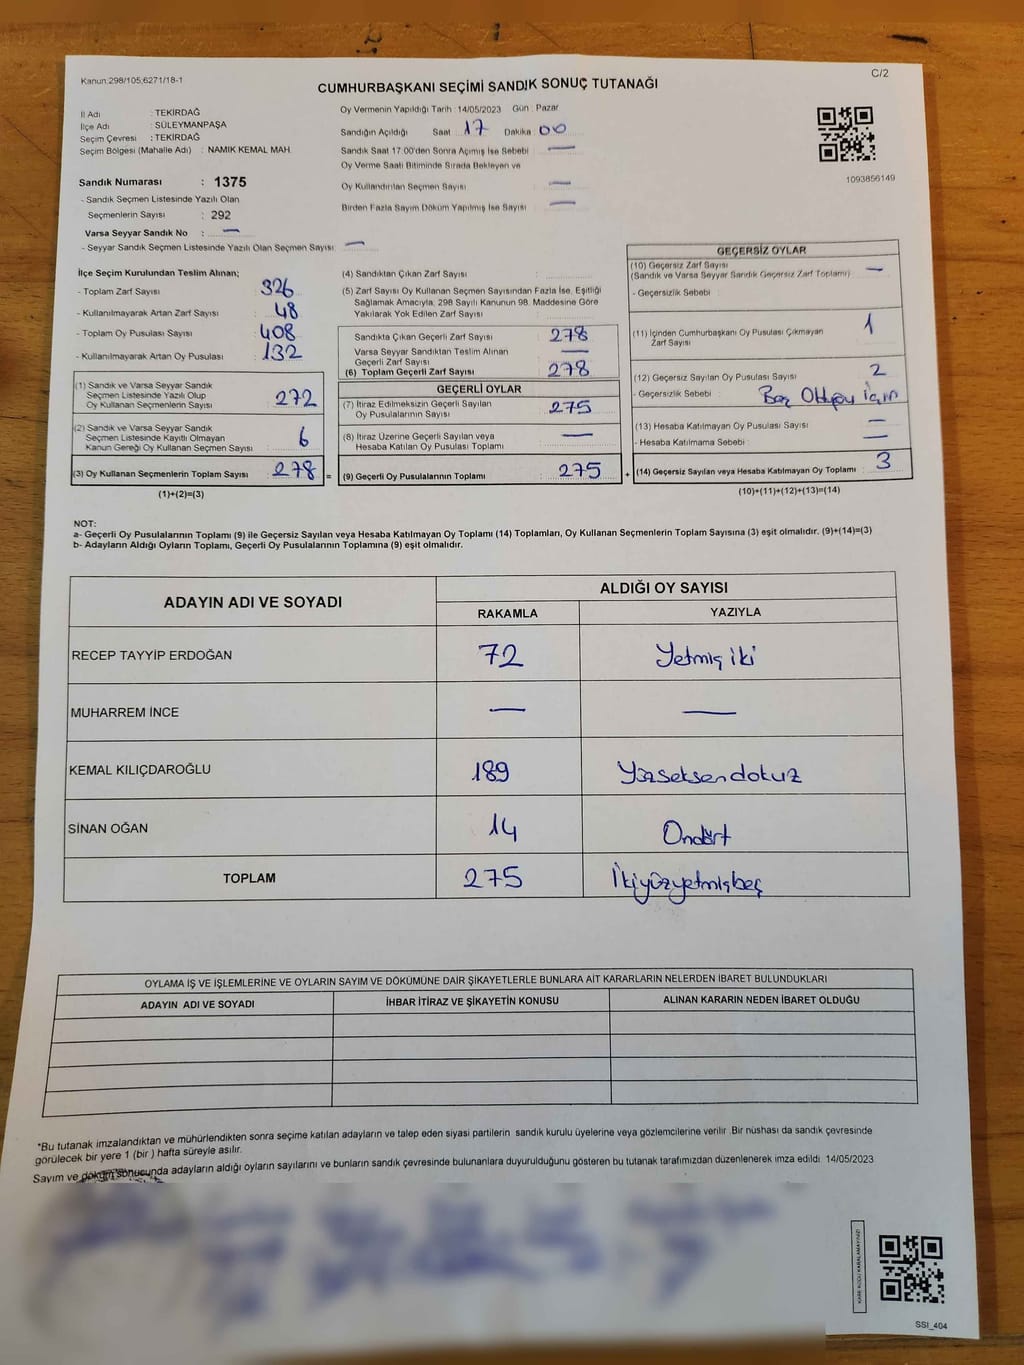 Kanun:298/105;6271/18-1
C/2
CUMHURBAŞKANI SEÇİMİ SANDIK SONUÇ TUTANAĞI
İl Adı : TEKİRDAĞ
İlçe Adı : SÜLEYMANPAŞA
Seçim Çevresi : TEKİRDAĞ
Seçim Bölgesi (Mahalle Adı) : NAMIK KEMAL MAH.
Sandık Numarası : 1375
- Sandık Seçmen Listesinde Yazılı Olan
Seçmenlerin Sayısı : 292
Varsa Seyyar Sandık No : —
- Seyyar Sandık Seçmen Listesinde Yazılı Olan Seçmen Sayısı : —
Oy Vermenin Yapıldığı Tarih :14/05/2023 Gün : Pazar
Sandığın Açıldığı Saat 17 Dakika 00
Sandık Saat 17:00'den Sonra Açımış İse Sebebi : —
Oy Verme Saati Bitiminde Sırada Bekleyen ve
Oy Kullandırılan Seçmen Sayısı : —
Birden Fazla Sayım Döküm Yapılmış İse Sayısı : —
1093856149
İlçe Seçim Kurulundan Teslim Alınan;
- Toplam Zarf Sayısı : 326
- Kullanılmayarak Artan Zarf Sayısı : 48
- Toplam Oy Pusulası Sayısı : 408
- Kullanılmayarak Artan Oy Pusulası : 132
(1) Sandık ve Varsa Seyyar Sandık
Seçmen Listesinde Yazılı Olup
Oy Kullanan Seçmenlerin Sayısı : 272
(2) Sandık ve Varsa Seyyar Sandık
Seçmen Listesinde Kayıtlı Olmayan
Kanun Gereği Oy Kullanan Seçmen Sayısı : 6
(3) Oy Kullanan Seçmenlerin Toplam Sayısı : 278 =
(1)+(2)=(3)
(4) Sandıktan Çıkan Zarf Sayısı :
(5) Zarf Sayısı Oy Kullanan Seçmen Sayısından Fazla İse, Eşitliği
Sağlamak Amacıyla, 298 Sayılı Kanunun 98. Maddesine Göre
Yakılarak Yok Edilen Zarf Sayısı :
Sandıkta Çıkan Geçerli Zarf Sayısı : 278
Varsa Seyyar Sandıktan Teslim Alınan
Geçerli Zarf Sayısı : —
(6) Toplam Geçerli Zarf Sayısı : 278
GEÇERLİ OYLAR
(7) İtiraz Edilmeksizin Geçerli Sayılan
Oy Pusulalarının Sayısı : 275
(8) İtiraz Üzerine Geçerli Sayılan veya
Hesaba Katılan Oy Pusulası Toplamı : —
(9) Geçerli Oy Pusulalarının Toplamı : 275 +
GEÇERSİZ OYLAR
(10) Geçersiz Zarf Sayısı : —
(Sandık ve Varsa Seyyar Sandık Geçersiz Zarf Toplamı)
- Geçersizlik Sebebi :
(11) İçinden Cumhurbaşkanı Oy Pusulası Çıkmayan
Zarf Sayısı : 1
(12) Geçersiz Sayılan Oy Pusulası Sayısı : 2
- Geçersizlik Sebebi : Boş Olduğu İçin
(13) Hesaba Katılmayan Oy Pusulası Sayısı : —
- Hesaba Katılmama Sebebi : —
(14) Geçersiz Sayılan veya Hesaba Katılmayan Oy Toplamı : 3
(10)+(11)+(12)+(13)=(14)
NOT:
a- Geçerli Oy Pusulalarının Toplamı (9) ile Geçersiz Sayılan veya Hesaba Katılmayan Oy Toplamı (14) Toplamları, Oy Kullanan Seçmenlerin Toplam Sayısına (3) eşit olmalıdır. (9)+(14)=(3)
b- Adayların Aldığı Oyların Toplamı, Geçerli Oy Pusulalarının Toplamına (9) eşit olmalıdır.
ADAYIN ADI VE SOYADI ALDIĞI OY SAYISI
RAKAMLA YAZIYLA
RECEP TAYYİP ERDOĞAN 72 Yetmiş iki
MUHARREM İNCE — —
KEMAL KILIÇDAROĞLU 189 Yüzseksendokuz
SİNAN OĞAN 14 Ondört
TOPLAM 275 İkiyüzyetmişbeş
OYLAMA İŞ VE İŞLEMLERİNE VE OYLARIN SAYIM VE DÖKÜMÜNE DAİR ŞİKAYETLERLE BUNLARA AİT KARARLARIN NELERDEN İBARET BULUNDUKLARI
ADAYIN ADI VE SOYADI İHBAR İTİRAZ VE ŞİKAYETİN KONUSU ALINAN KARARIN NEDEN İBARET OLDUĞU
*Bu tutanak imzalandıktan ve mühürlendikten sonra seçime katılan adayların ve talep eden siyasi partilerin sandık kurulu üyelerine veya gözlemcilerine verilir. Bir nüshası da sandık çevresinde
görülecek bir yere 1 (bir ) hafta süreyle asılır.
Sayım ve döküm sonucunda adayların aldığı oyların sayılarını ve bunların sandık çevresinde bulunanlara duyurulduğunu gösteren bu tutanak tarafımızdan düzenlenerek imza edildi. 14/05/2023
KARE KODU KARALAMAYINIZ!
SSI_404